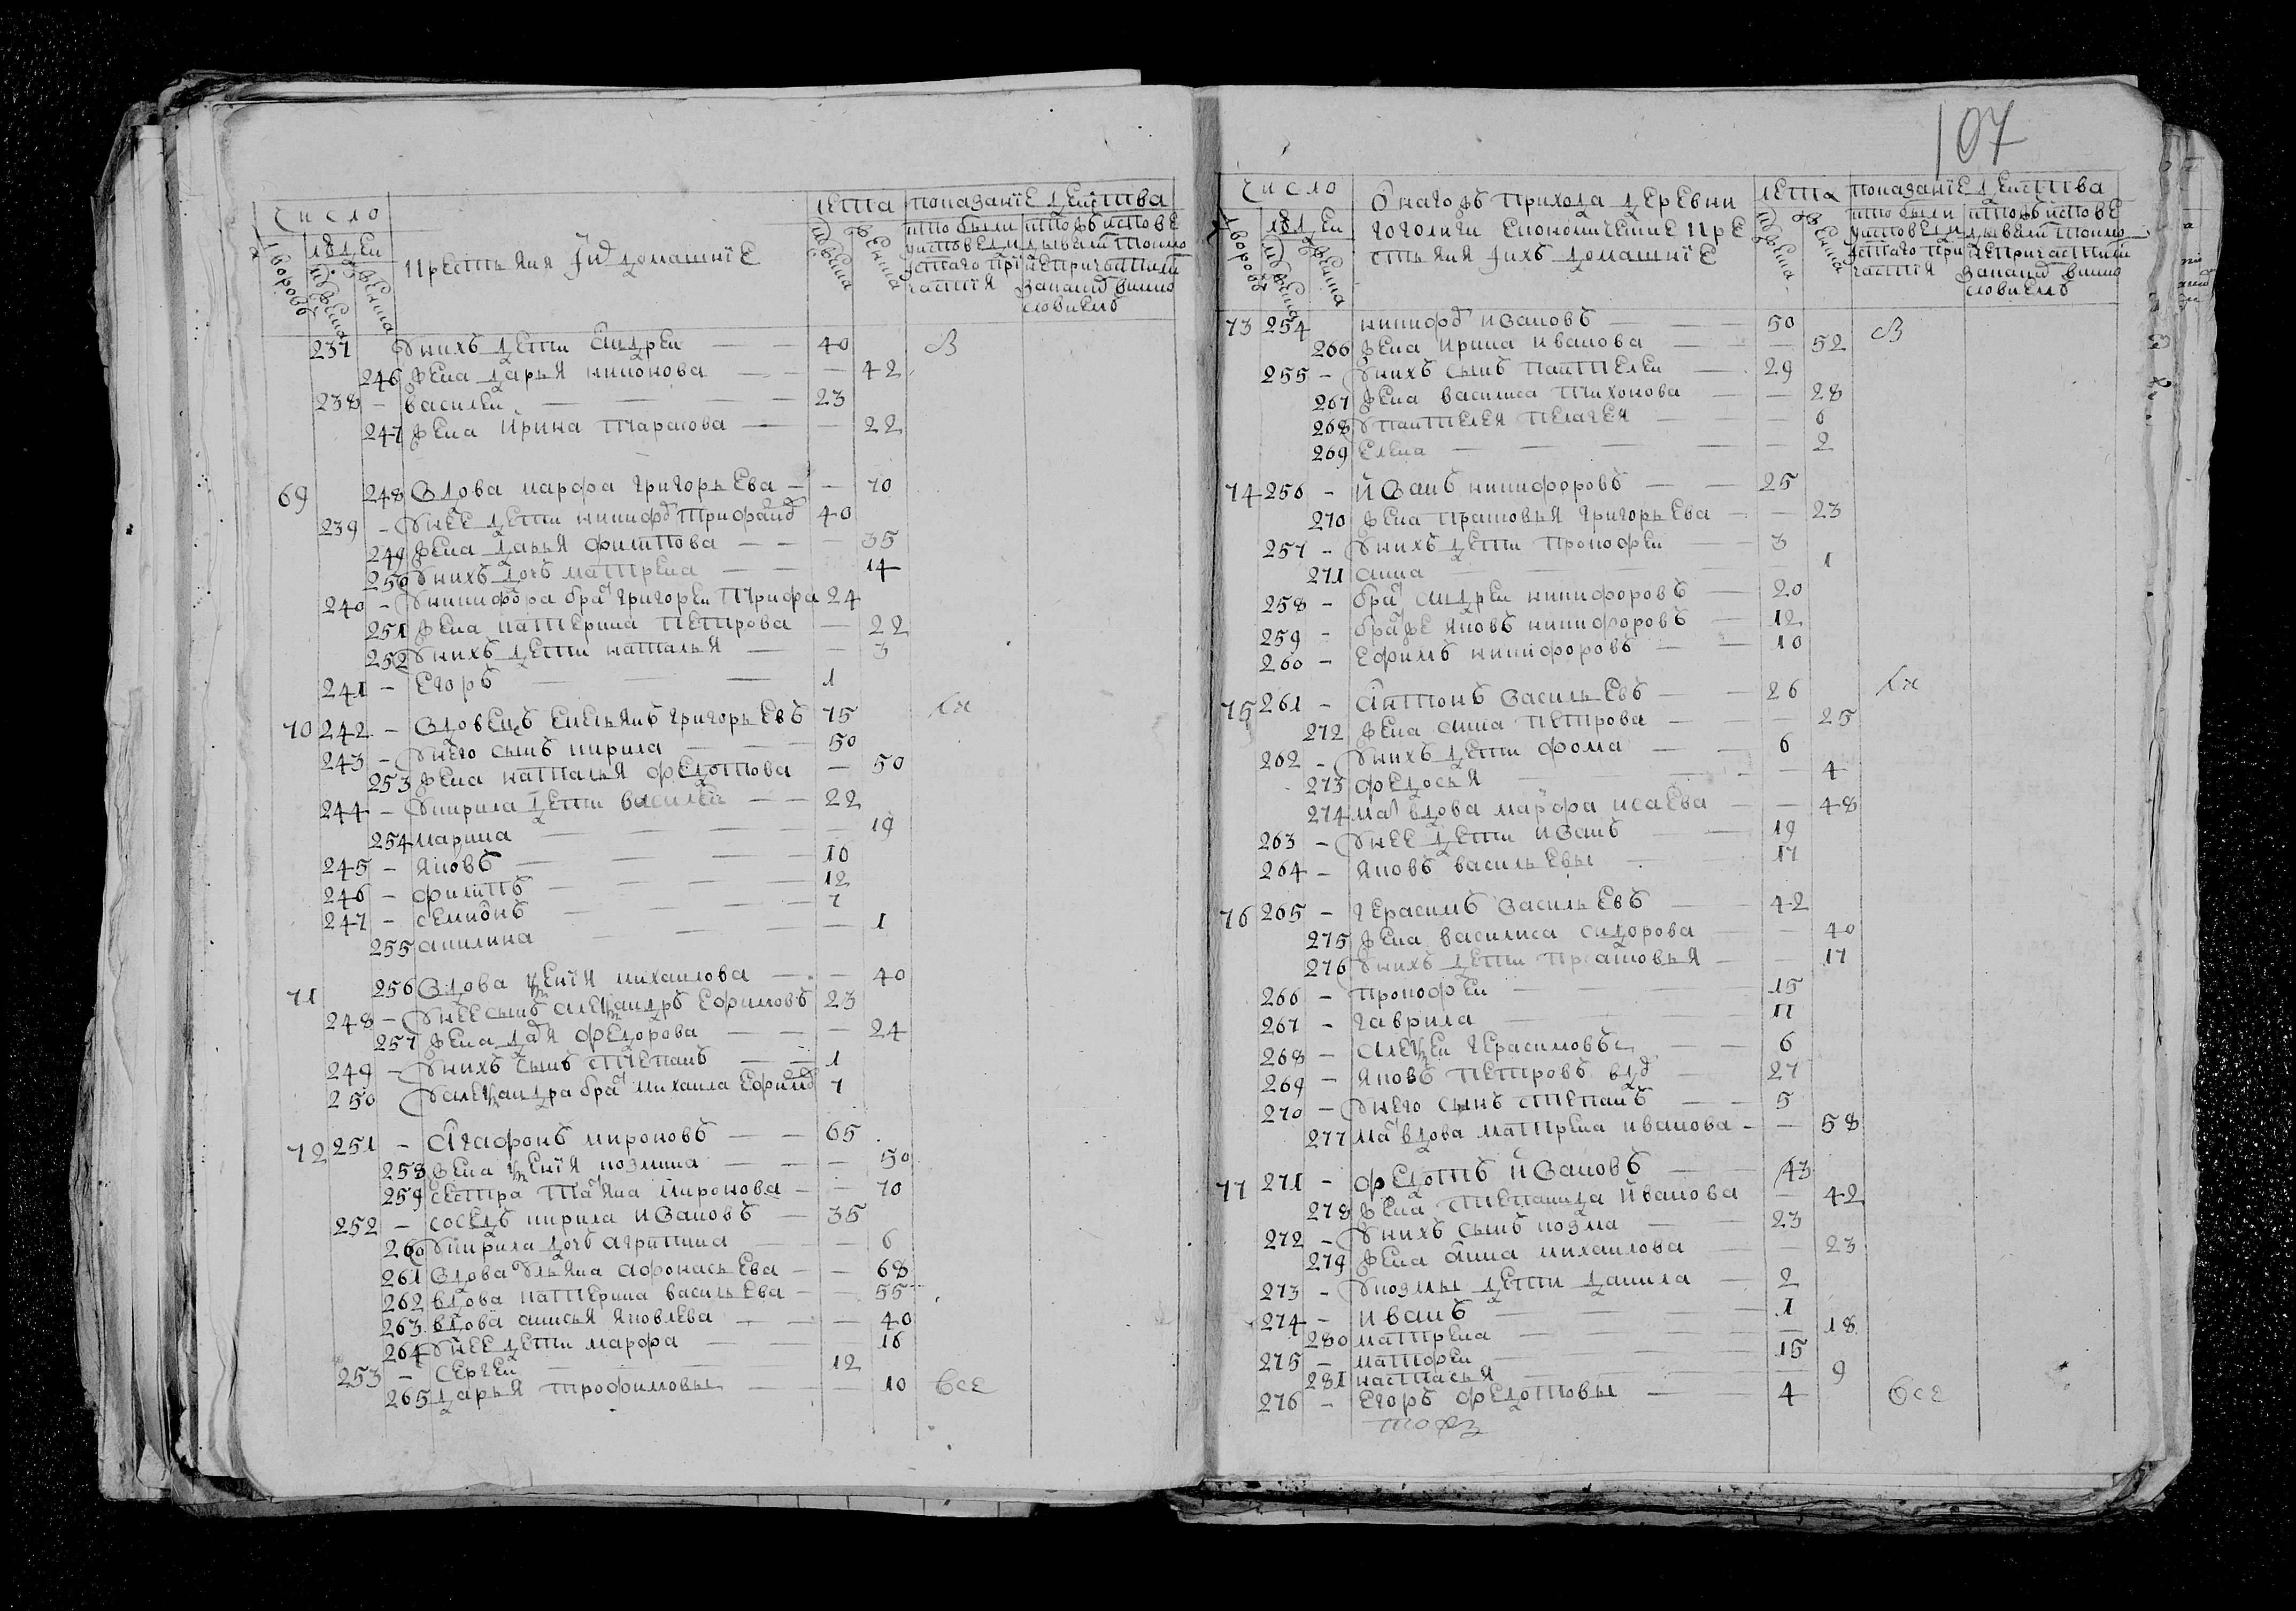 107
число
лета
показанїе действа
дворовъ
людей
мужеска
женска
крестьяня і ид домашнїе
мужеска
женска
кто были
у исповеди и
святаго при
частїя
кто жъ исповедывались токмо
не причастились
за какимъ винословиемъ
237 У нихъ дети Андрей — — 40 В
246 жена дарья никонова — — 42
238 — василей — — 23
247 жена Ирина тарасова — — 22
69 248 Вдова марфа григорьева — — 70
239 — У нее дети никифоръ трифанов 40
249 жена дарья филипова — — 35
250 У нихъ дочь матрена — — 14
240 — У никифора бра григорей Трифа 24
251 жена катерина петрова — 22
252 У нихъ дети наталья — — 3
241 — Егоръ — — 1
70 242 — Вдовецъ Емельянъ григорьевъ 75
243 — У него сынъ кирила — — 50
253 жена наталья федотова — 50
244 — У кирила дети василей — — 22
254 марина — — 19
245 — яковъ — — 10
246 — филипъ — — 12
247 — семионъ — — 7
255 акилина — — 1
71 256 Вдова ѯенїя михаилова — — 40
248 — У нее сынъ алеѯандръ Ефимовъ 23
257 жена дадя федорова — — 24
249 — У нихъ сынъ степанъ — — 1
250 У алеѯандра бра михаила Ефимов 7
72 251 — Агафонъ мироновъ — — 65
258 жена ѯенїя козмина — — 50
259 сестра татяна миронова — — 70
252 — соседъ кирила ивановъ — 35
260 У кирила дочь агрипина — 6
261 Вдова Ульяна афонасьева — — 68
262 вдова катерина васильева — — 55
263 вдова анисья яковлева — — 40
264 У нее дети марфа — — 16
253 — Сергей — — 12
265 дарья трофимовы — — 10 все
число
Онагожъ прихода деревни
гоголиги економические кре
стьяня і ихъ домашнїе
лета
показанїе действа
дворовъ
людей
мужеска
женска
мужеска
женска
кто были
у исповеди и
святаго при
частїя
кто жъ исповедывались токмо
не причастили
за какимъ винословиемъ
73 254 никифоръ ивановъ — — 50 В
266 жена ирина иванова — — 52
255 — У нихъ сынъ пантелей — 29
267 жена василиса тихонова — — 28
268 У пантелея пелагея — — 6
269 елена — — 2
74 256 — Иванъ никифоровъ — — 25
270 жена прасковья григорьева — — 23
257 — У нихъ дети прокофей — 3
271 анна — 1
258 — бра андрей никифоровъ — 20
259 — бра же яковъ никифоровъ — 12
260 — Ефимъ никифоровъ — — 10
75 261 — Антонъ васильевъ — — 26
272 жена анна петрова — — 25
262 — У нихъ дети фома — — 6
273 федосья — — 4
274 ма вдова марфа исаева — — 48
263 — У нее дети иванъ — — 19
264 — яковъ васильевы — 17
76 265 — Герасимъ васильевъ — — 42
275 жена василиса сидорова — — 40
276 У нихъ дети прасковья — — 17
266 — прокофей — — 15
267 — гаврила — — 11
268 — алеѯей герасимовы — — 6
269 — яковъ петровъ вд — 27
270 — У него сынъ степанъ — — 5
277 ма вдова матрена иванова — — 58
77 271 — федотъ Ивановъ — — 43
278 жена степанида Иванова — 42
272 — У нихъ сынъ козма — — 23
279 жена анна михаилова — — 23
273 — У козмы дети данила — 2
274 — иванъ — — 1
280 матрена — — 18
275 — матфей — — 15
281 настасья — — 9
276 — егоръ федотовы — 4 все